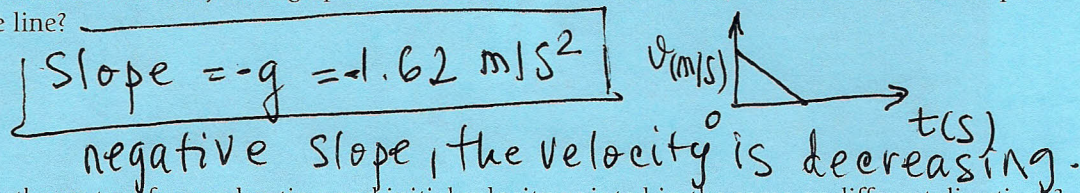 e line?
Slope = -g = -1.62 m/s²
v(m/s)
0
t(s)
negative slope, the velocity is decreasing.